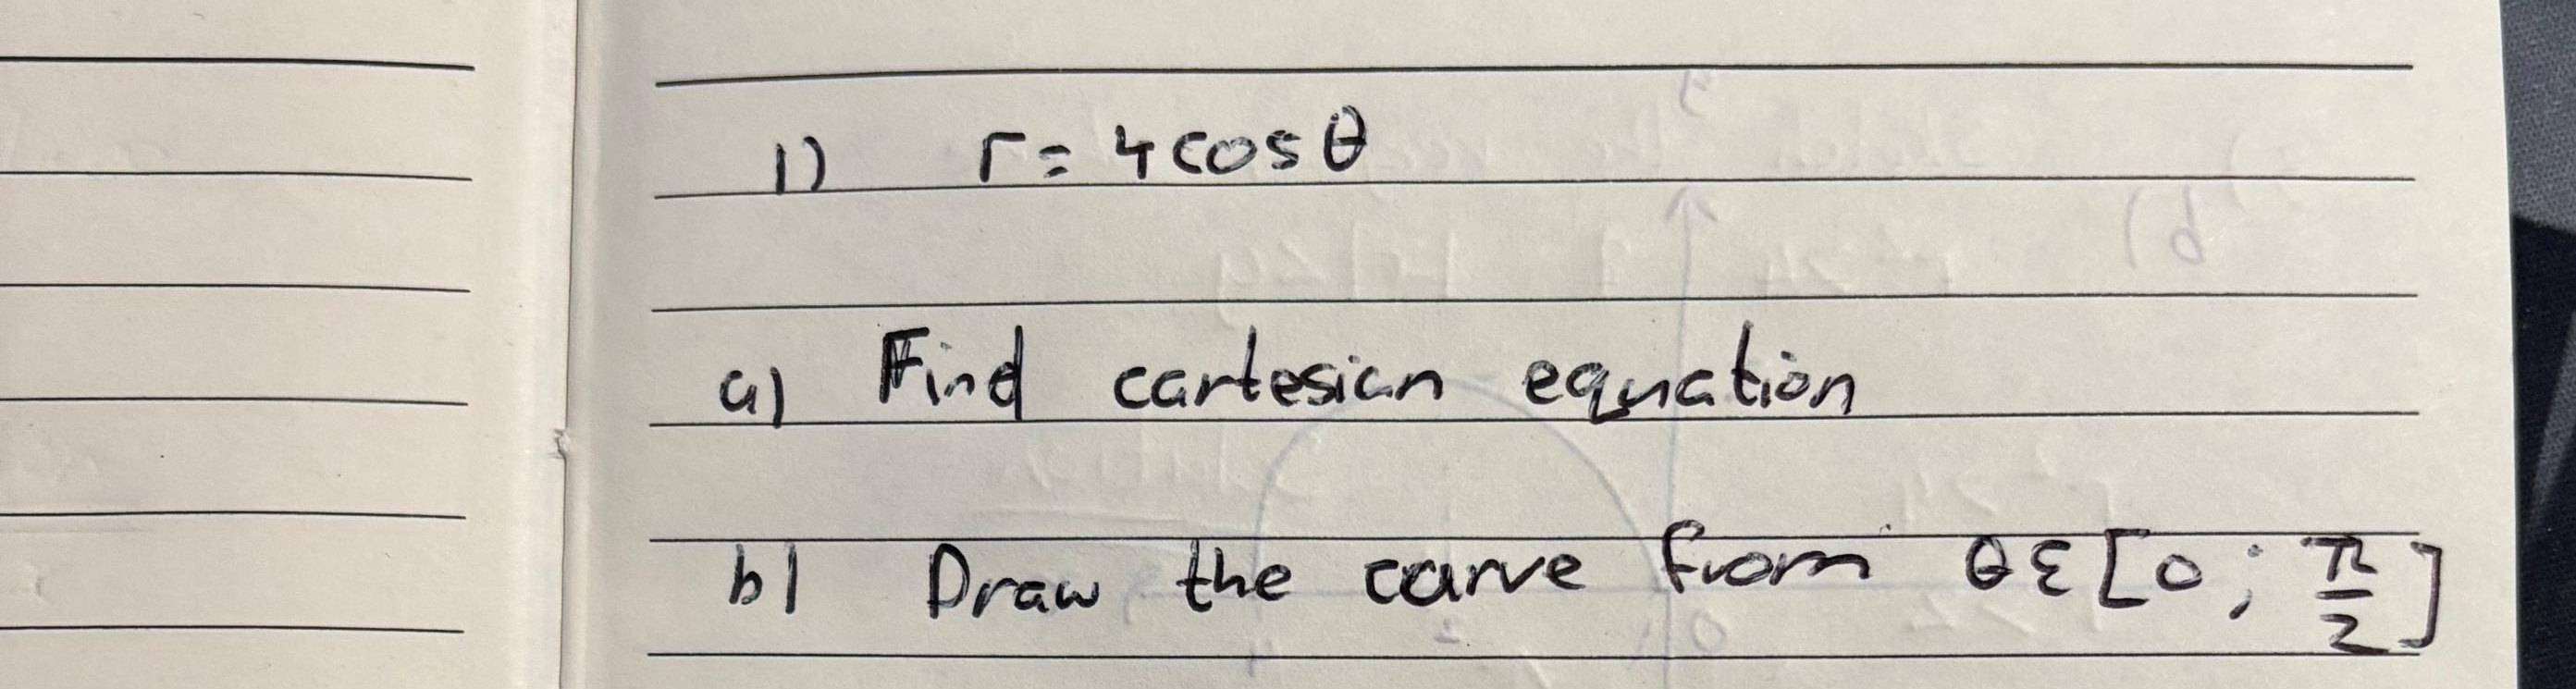 1) r = 4cosθ
a) Find cartesian equation
b) Draw the curve from θε[0; π/2]